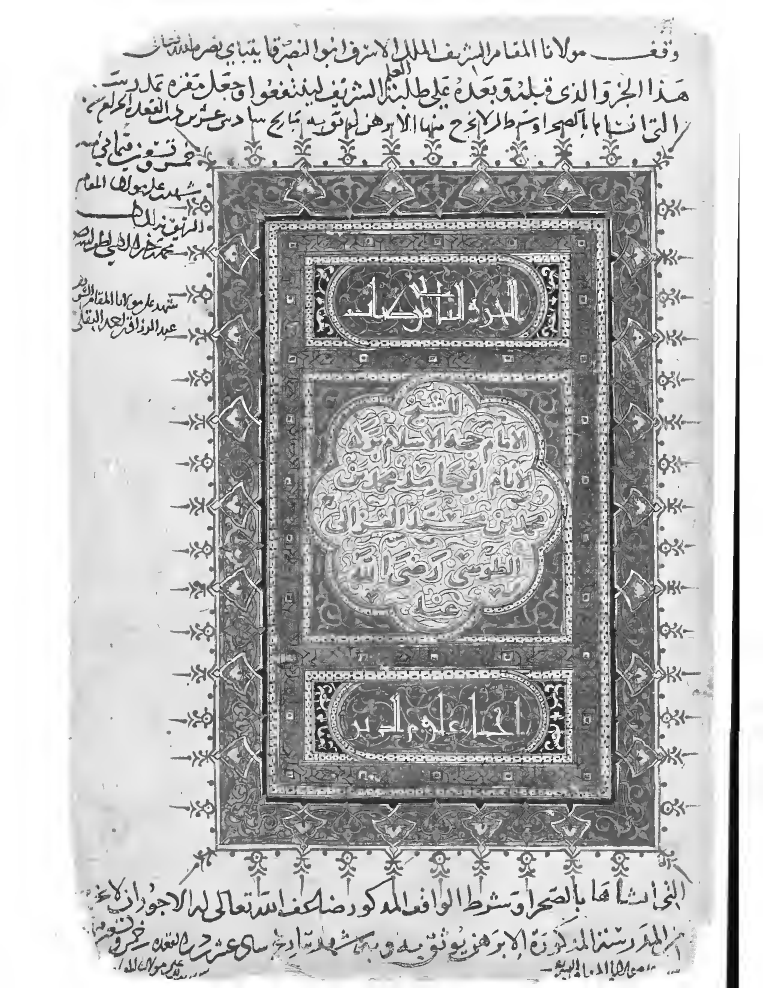 وقف مولانا المقام الشريف الملك الاشرف ابو النصر قايتباي نصره الله
هذا الجزو الذي قبله وبعده على طلبة العلم الشريف لينتفعوا به وجعل مقره بمدرسته
التي انشاها بالصحرا وشرط ان لا يخرج منها الا برهن يوثق به بتاريخ سادس عشر القعده الحرام
شهد على مولانا المقام
شهد على مولانا المقام الشريف
عبد الرزاق
الجزء الثاني من كتاب
للشيخ
الامام حجة الاسلام بركة
الانام ابي حامد محمد بن
محمد بن محمد الغزالي
الطوسي رضي الله
عنه
احياء علوم الدين
التي انشاها بالصحرا وشرط الواقف المذكور ضاعف الله تعالى له الاجور ان لا
المدرسة المذكورة الا برهن يوثق به وبه شهد بتاريخ سادس عشر القعده